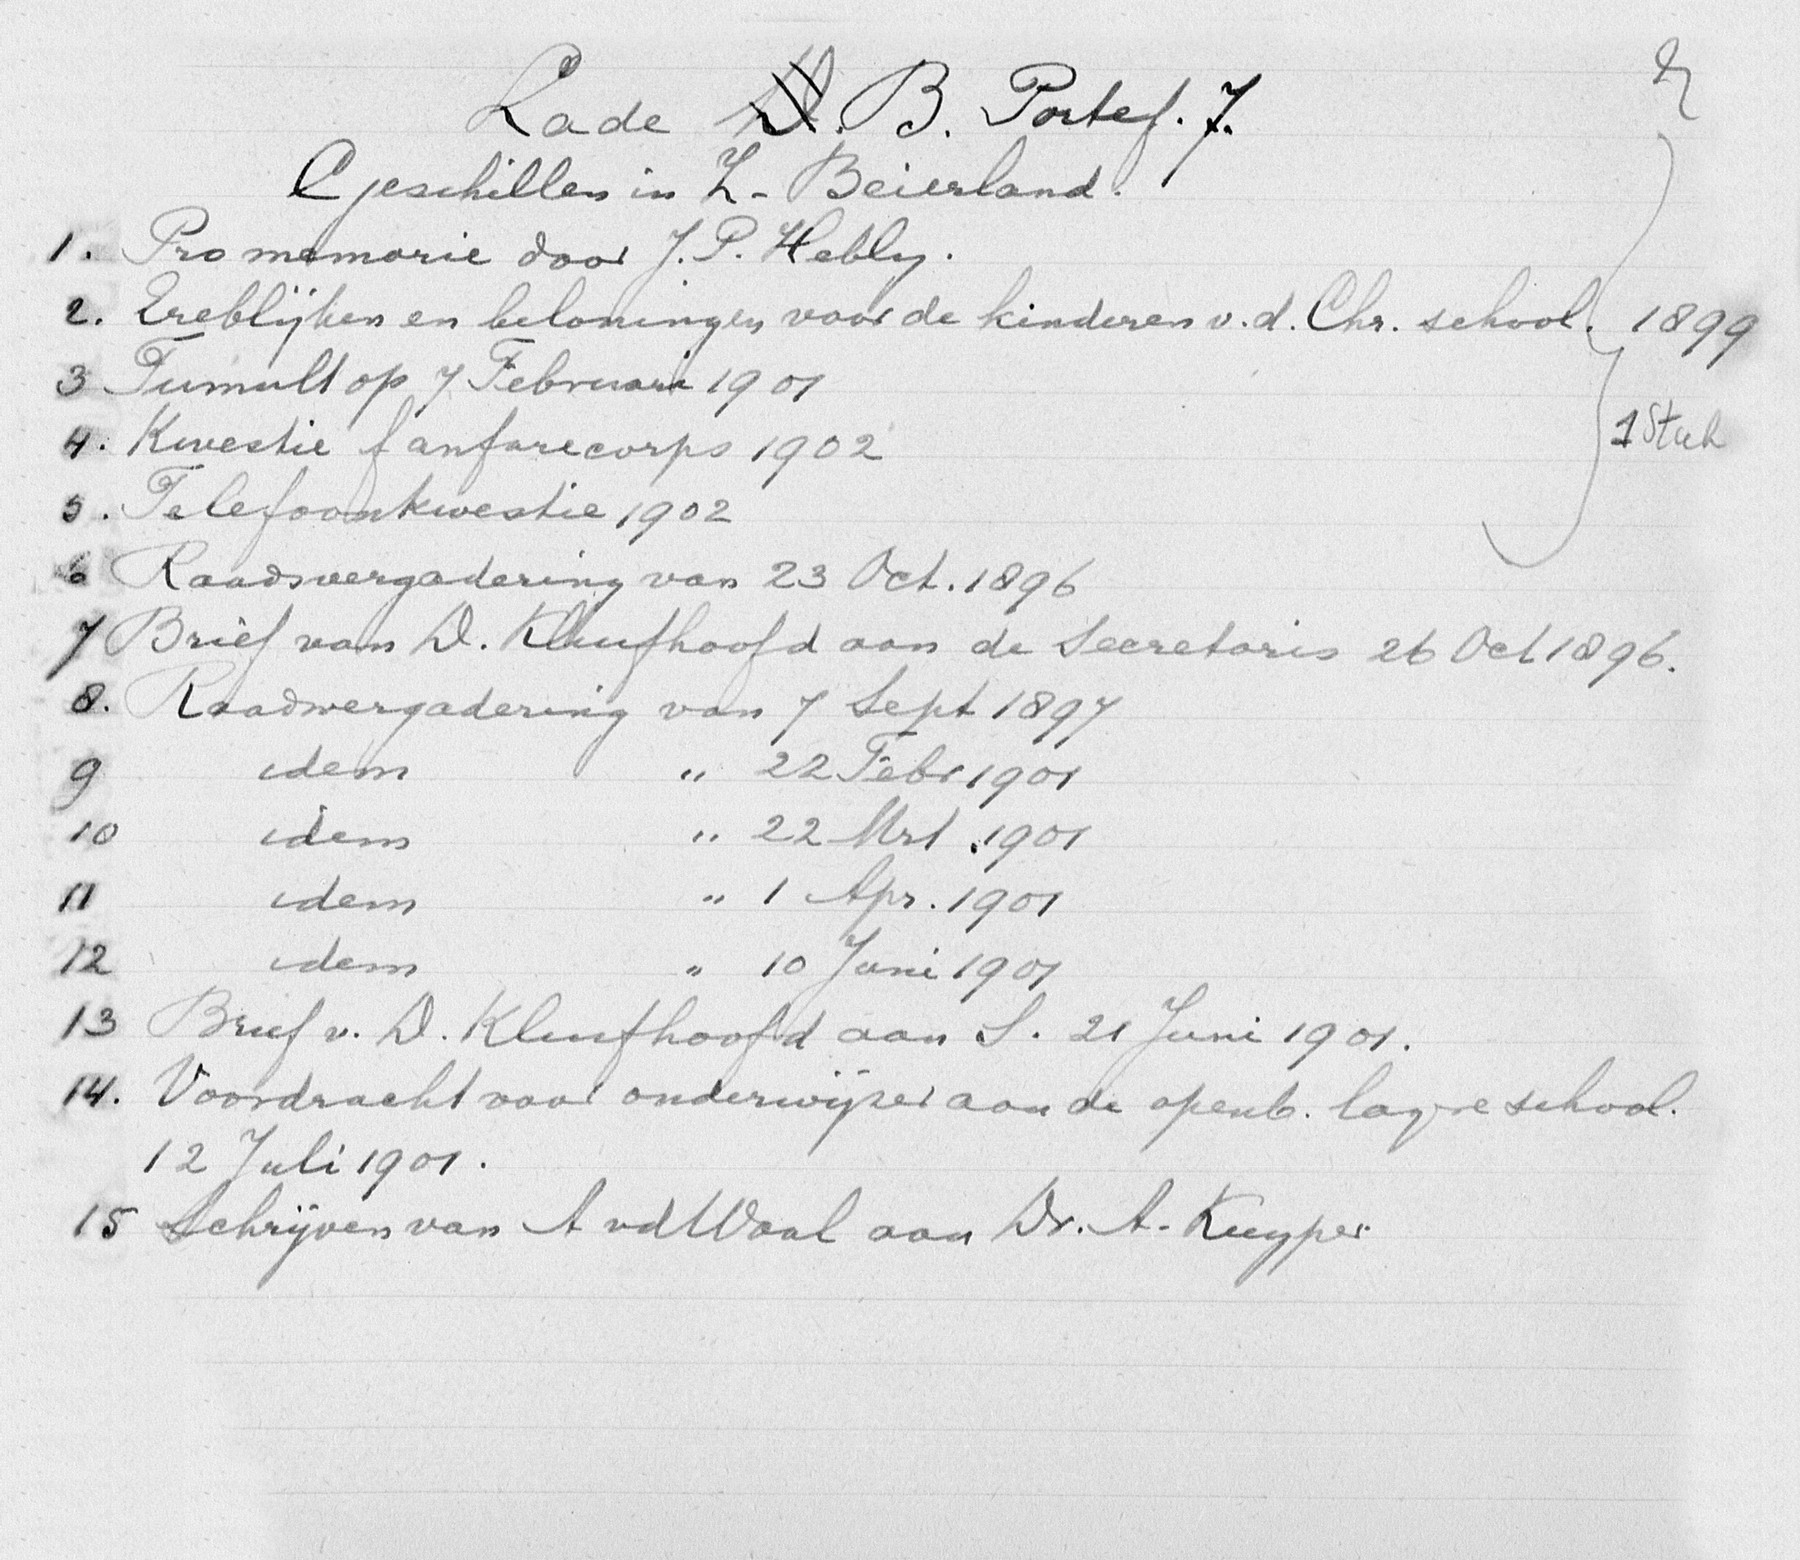 Lade B. Portef. 7.
Geschillen in Z- Beierland.
1. Pro memorie door J. P. Hebly.
2. Ereblijken en beloningen voor de kinderen v. d. Chr. school. 1899
3 Tumult op 7 Februari 1901
4. Kwestie fanfarecorps 1902
1 Stuk
5. Telefoonkwestie 1902
6 Raadsvergadering van 23 Oct. 1896
7 Brief van D. Kluifhoofd aan de Secretaris 26 Oct 1896.
8. Raadsvergadering van 7 Sept 1897
9 idem " 22 Febr 1901
10 idem " 22 Mrt . 1901
11 idem " 1 Apr. 1901
12 idem " 10 Juni 1901
13 Brief v. D. Kluifhoofd aan S. 21 Juni 1901.
14. Voordracht voor onderwijzer aan de openb. lagere school.
12 Juli 1901.
15 Schrijven van A vd Waal aan Dr. A. Kuyper